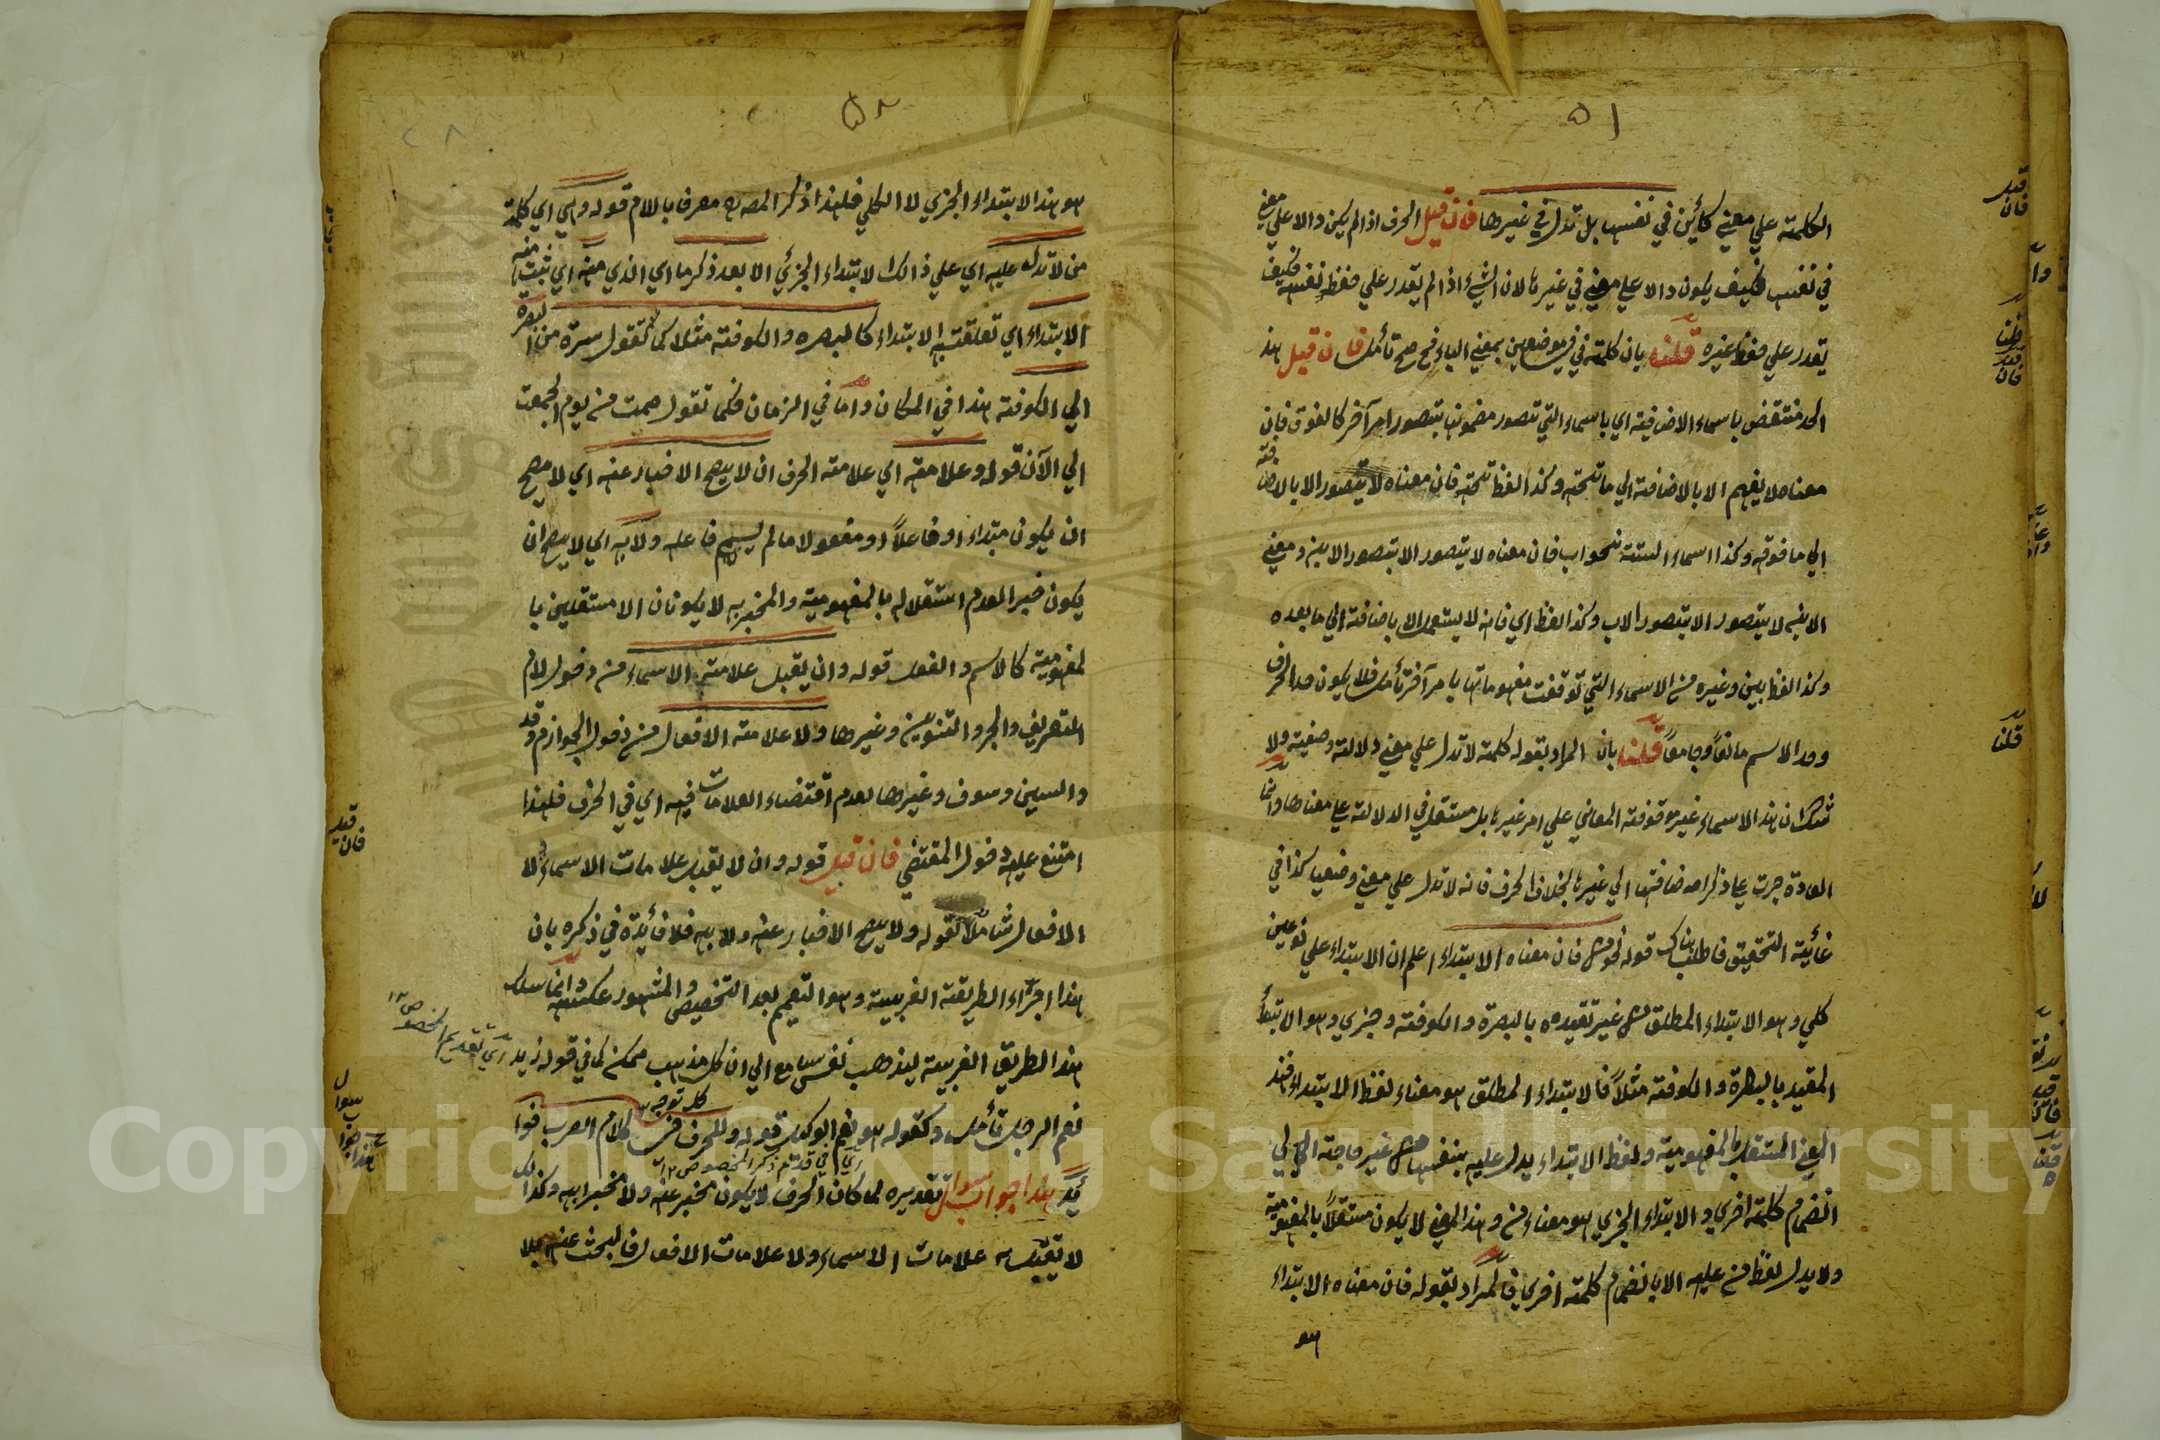 ٥١
الكلمة علي معني كائن في نفسها بل تدل في غيرها فان قيل الحرف اذا لم يكن دالا علي معني
في نفسه فكيف يكون دالا علي معني في غيره لان الشيء اذا لم يقدر علي حفظ نفسه فكيف
يقدر علي حفظ غيره قلنا بان كلمة في في موضعين بمعني الباء فح صح تأمل فان قيل هذا
الحد منتقض باسماء الاضافية اي باسماء التي تصور مضمونها بتصور امر آخر كالفوق فان
معناه لا يفهم الا بالاضافة الي ما تحته وكذا لفظ تحته فان معناه لا يتصور الا بالاضافة
الي ما فوقه وكذا اسماء الستة نحو اب فان معناه لا يتصور الا بتصور الابن ومعني
الابن لا يتصور الا بتصور الاب وكذا لفظ اي فانه لا يستعمل الا باضافة الي ما بعده
وكذا لفظ بين وغيره من الاسماء التي توقفت مفهوماتها بامر آخر تأمل فلا يكون حد الحرف
وحد الاسم مانعاً وجامعاً قلنا بان المراد بقوله كلمة لا تدل علي معني دلالة وضعية ولا
شك ان هذا الاسماء غير موقوفة المعاني علي امر غيرها بل مستقل في الدلالة علي معناها وانما
العادة جرت علي ذكر اضافتها الي غيرها بخلاف الحرف فانه لا تدل علي معني وضعيا كذا في
غاية التحقيق فاطلب هناك قوله نحو من فان معناه الابتداء اعلم ان الابتداء علي نوعين
كلي وهو الابتداء المطلق من غير تقييده بالبصرة والكوفة وجزي وهو الابتداء
المقيد بالبصرة والكوفة مثلاً فالابتداء المطلق هو معناه لفظ الابتداء فهذا
المعني المستقل بالمفهومية ولفظ الابتداء يدل عليه بنفسها من غير حاجة الي
انضمام كلمة اخري والابتداء الجزي هو معناه من وهذا المعني لا يكون مستقلاً بالمفهومية
ولا يدل لفظ من عليه الا بانضمام كلمة اخري فالمراد بقوله فان معناه الابتداء
هو
٥٢
هو هذا الابتداء الجزي لا الكلي فلهذا ذكر المصه معرفا بالام قوله وهي اي كلمة
من لا تدل عليه اي علي ذالك الابتداء الجزئي الا بعد ذكر ما اي الذي منه اي تبت منه
الابتداء اي تعلقت به الابتداء كالبصره والكوفة مثلا كما تقول سرت من البصرة
الي الكوفة هذا في المكان واما في الزمان فكما تقول صمت من يوم الجمعة
الي الآن قوله وعلامته اي علامة الحرف ان لا يصح الاخبار عنه اي لا يصح
ان يكون مبتداء او فاعلاً او مفعولا ما لم يسم فاعله ولا به اي لا يصح ان
يكون خبرا لعدم استقلاله بالمفهومية والمخبر به لا يكونان الا مستقلين با
لمفهومية كالاسم والفعل قوله وان يقبل علامة الاسماء من دخول لام
التعريف والجر والتنوين وغيرها ولا علامة الافعال من دخول الجوازم وقد
والسين وسوف وغيرها لعدم اقتضاء العلامات فيه اي في الحرف فلهذا
امتنع عليه دخول المقتضي فان قيل قوله وان لا يقبل علامات الاسماء ولا
الافعال شاملاً لقوله ولا يصح الاخبار عنه ولا به فلا فائدة في ذكره بان
هذا اجراء الطريقة الغريبة وهو التعميم بعد التخصيص والمشهور عكسه وانما سلك
هذا الطريق الغريبة ليذهب نفس سامع الي ان كل مذهب ممكن كما في قوله زيد
نعم الرجل تأمل وكقوله هو نعم ابوك قوله وللحرف في كلام العرب فوا
ئد هذا جواب سوال تقديره لما كان الحرف لا يكون مخبر عنه ولا مخبرا به وكذالك
لا يقبل علامات الاسماء ولا علامات الافعال فالبحث عنه بلا
فان قيل
قلنا
فان قيل
قلنا
فان قيل
سوال
Copyright © King Saud University